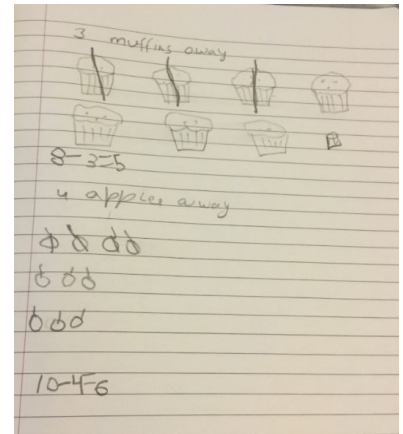 3 muffins away
8-3=5
4 apples away
10-4=6